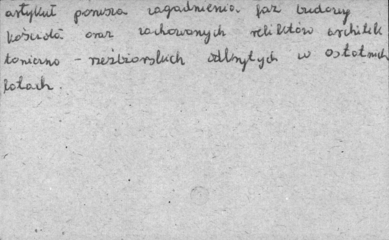 artykuł porusza zagadnienia faz budowy
kościoła oraz zachowanych reliktów architek
toniczno - rzeźbiarskich odkrytych w ostatnich
latach.